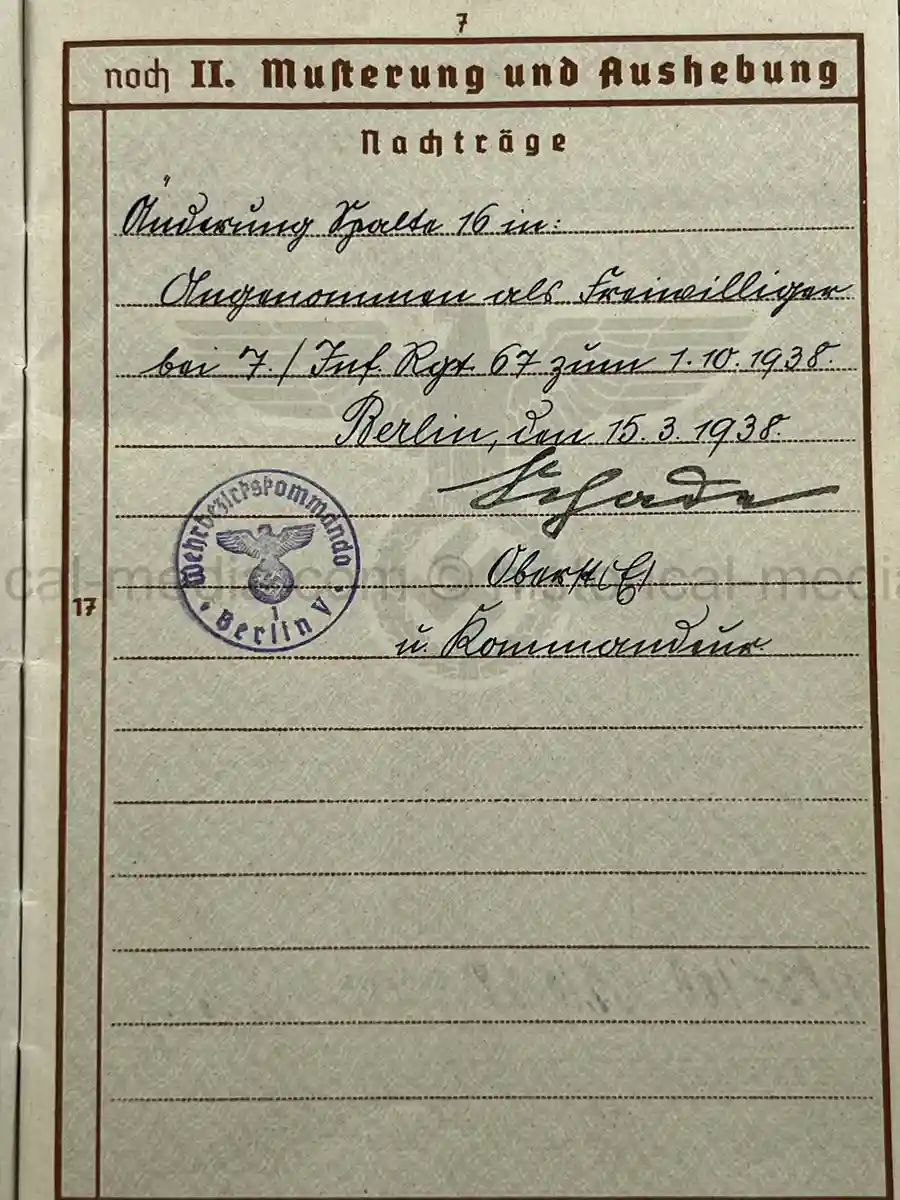 7
noch II. Musterung und Aushebung
Nachträge
Änderung Spalte 16 in:
Angenommen als Freiwilliger
bei 7./ Inf. Rgt. 67 zum 1.10.1938.
Berlin, den 15.3.1938.
Schade
Oberst (E)
u. Kommandeur
Wehrbezirkskommando
1
Berlin V
17
cal-media.com © historical-media